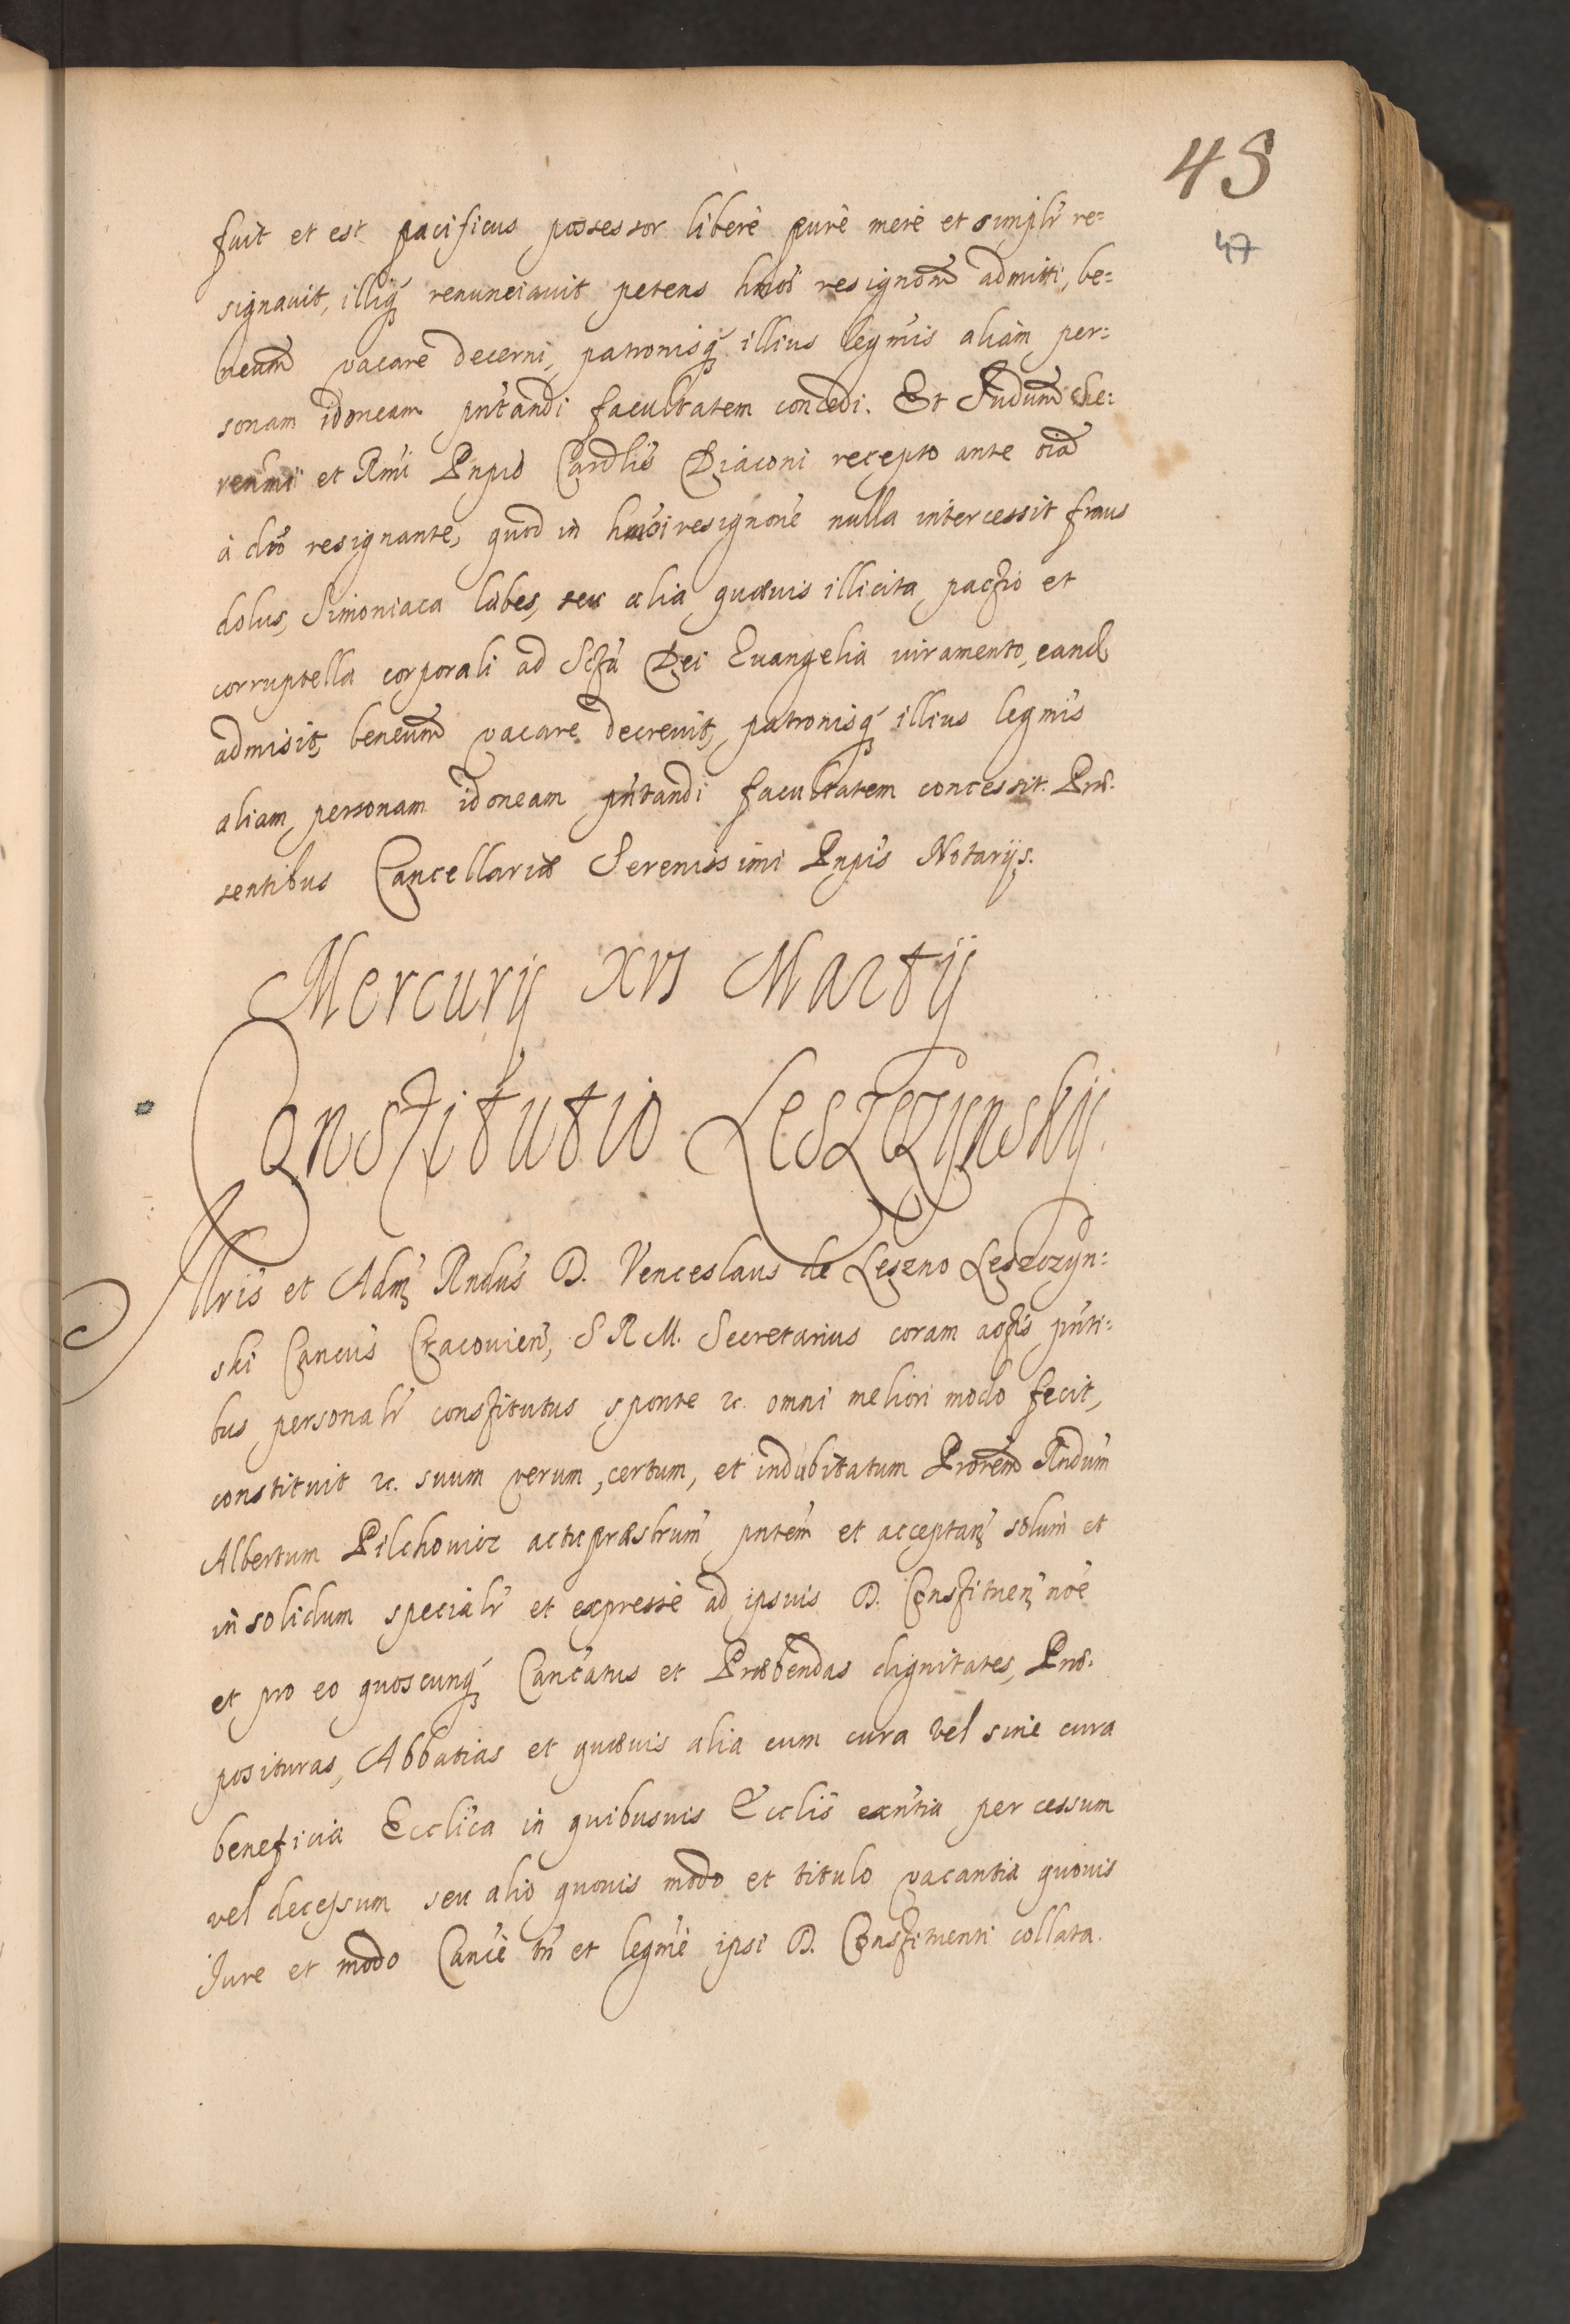 45
47
fuit et est pacificus possessor liberè purè merè et simplr̃ re=
signauit, illiq₃ renunciauit petens hmõi resignoñem admitti, be=
neum̃ vacare decerni, patronisq₃ illius legm̃is aliam per=
sonam idoneam pñtandi facultatem concedi. Et
et Rmĩ Pnp̃is Cardlis̃ Diaconi recepto ante oiã
à dto᷉ resignante, quod in hmõi resignoñe nulla intercessit fraus
dolus, Simoniaca labes, seu alia quæuis illicita pactio et
corruptella corporali ad Sctã Dei Euangelia iuramento, eand
admisit, beneum̃ vacare decreuit, patronisq₃ illius legm̃is
aliam personam idoneam pñtandi facultatem concessit. Præ=
sentibus Cancellariæ Serenissimi Pnp̃is Notarijs.
Mercurij XVI Martij
Constitutio Leszczynskij.
Illris̃ et Adm̃ Rndus̃ D. Venceslaus de Leszno Leszczyn=
ski Canc̃us Cracovien̄, S R M. Secretarius coram actis pñti=
bus personalr̃ constitutus sponte etc. omni meliori modo fecit,
constituit etc. suum verum, certum, et indubitatum Prõrem Rndum̃
Albertum Pilchowicz pñtem et acceptañ solum et
in solidum specialr̃ et expressè ad ipsius D. Constituen̄ noẽ
et pro eo quoscunq₃ Canc̃atus et Præbendas dignitates, Præ=
posituras, Abbatias et quæuis alia cum cura vel sine cura
beneficia Ecclica̅ in quibusuis Ecclis̃ exñtia per cessum
vel decessum seu alio quouis modo et titulo vacantia quouis
Jure et modo Canc̃è tñ et legm̃è ipsi D. Constituenti collata.